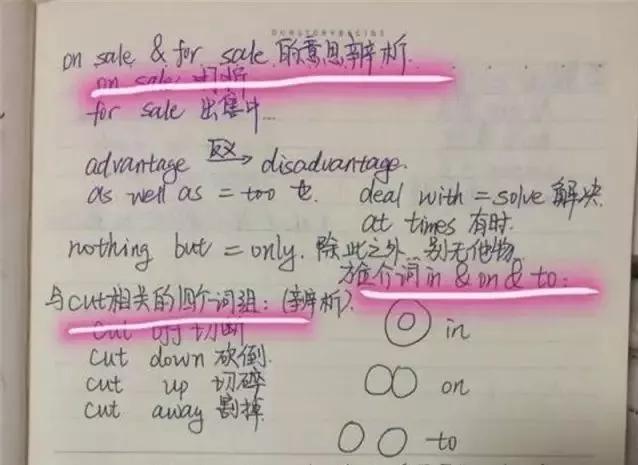 on sale & for sale 的意思辨析.
on sale 打折
for sale 出售中...
advantage 反义→ disadvantage.
as well as = too 也 deal with = solve 解决.
at times 有时.
nothing but = only. 除此之外. 别无他物.
方位介词 in & on & to:
与cut相关的四个词组: (辨析).
cut off 切断
cut down 砍倒.
cut up 切碎
cut away 割掉
in
on
to